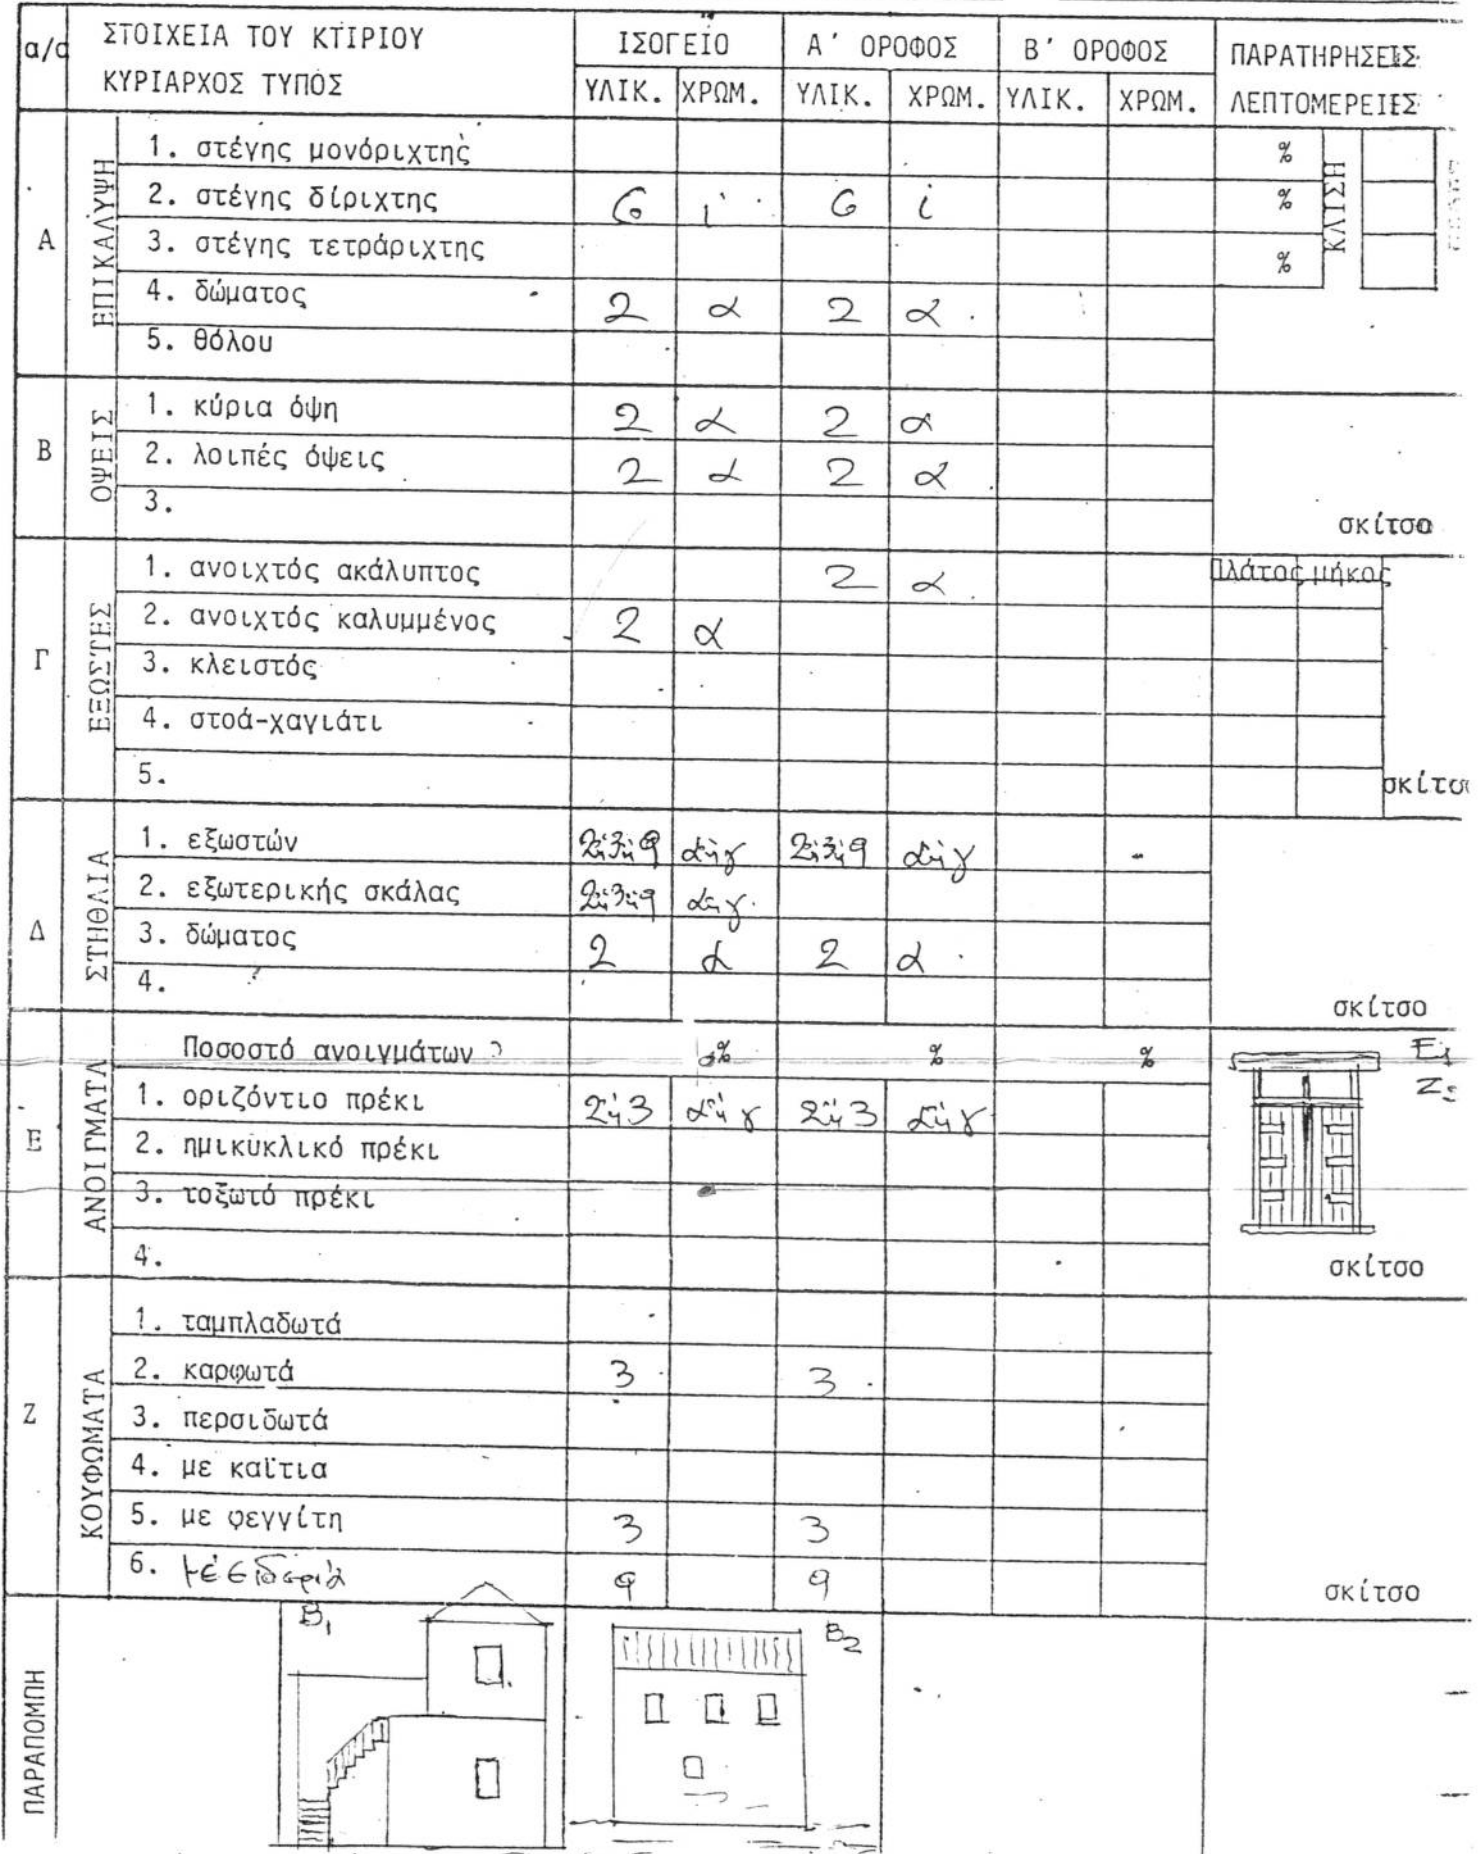 α/α ΣΤΟΙΧΕΙΑ ΤΟΥ ΚΤΙΡΙΟΥ ΙΣΟΓΕΙΟ Α' ΟΡΟΦΟΣ Β' ΟΡΟΦΟΣ ΠΑΡΑΤΗΡΗΣΕΙΣ
ΚΥΡΙΑΡΧΟΣ ΤΥΠΟΣ ΥΛΙΚ. ΧΡΩΜ. ΥΛΙΚ. ΧΡΩΜ. ΥΛΙΚ. ΧΡΩΜ. ΛΕΠΤΟΜΕΡΕΙΕΣ
Α ΕΠΙΚΑΛΥΨΗ
1. στέγης μονόριχτης % ΚΛΙΣΗ
2. στέγης δίριχτης 6 i 6 i %
3. στέγης τετράριχτης %
4. δώματος 2 α 2 α
5. θόλου
Β ΟΨΕΙΣ
1. κύρια όψη 2 α 2 α
2. λοιπές όψεις 2 α 2 α
3. σκίτσο
Γ ΕΞΩΣΤΕΣ
1. ανοιχτός ακάλυπτος 2 α Πλάτος μήκος
2. ανοιχτός καλυμμένος 2 α
3. κλειστός
4. στοά-χαγιάτι
5. σκίτσο
Δ ΣΤΗΘΑΙΑ
1. εξωστών 2ή3ή9 αήγ 2ή3ή9 αήγ
2. εξωτερικής σκάλας 2ή3ή9 αήγ
3. δώματος 2 α 2 α
4. σκίτσο
Ε ΑΝΟΙΓΜΑΤΑ
Ποσοστό ανοιγμάτων % % % Ε1
1. οριζόντιο πρέκι 2ή3 αήγ 2ή3 αήγ
2. ημικυκλικό πρέκι
3. τοξωτό πρέκι
4. σκίτσο
Ζ ΚΟΥΦΩΜΑΤΑ
1. ταμπλαδωτά
2. καρφωτά 3 3
3. περσιδωτά
4. με καΐτια
5. με φεγγίτη 3 3
6. με σιδεριά 9 9 σκίτσο
ΠΑΡΑΠΟΜΠΗ
Β1 Β2